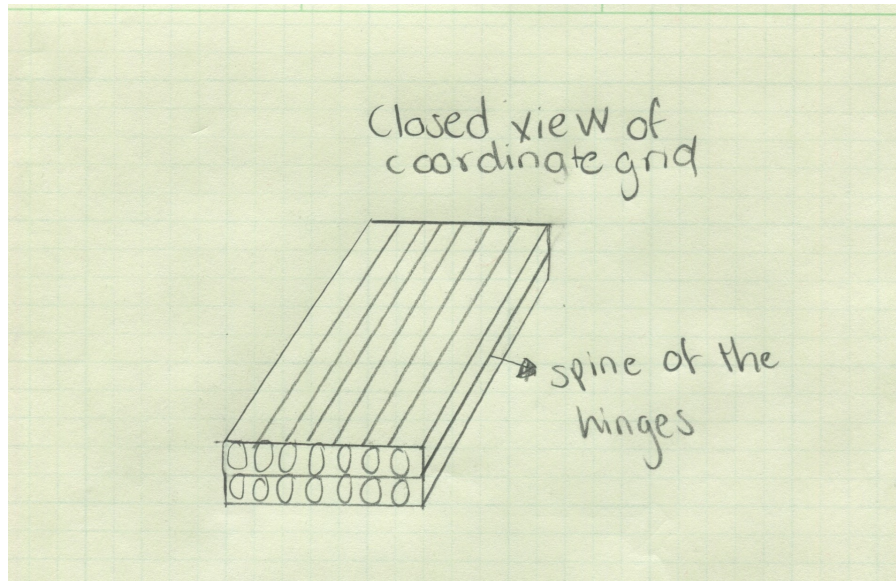 Closed view of
coordinate grid
spine of the
hinges